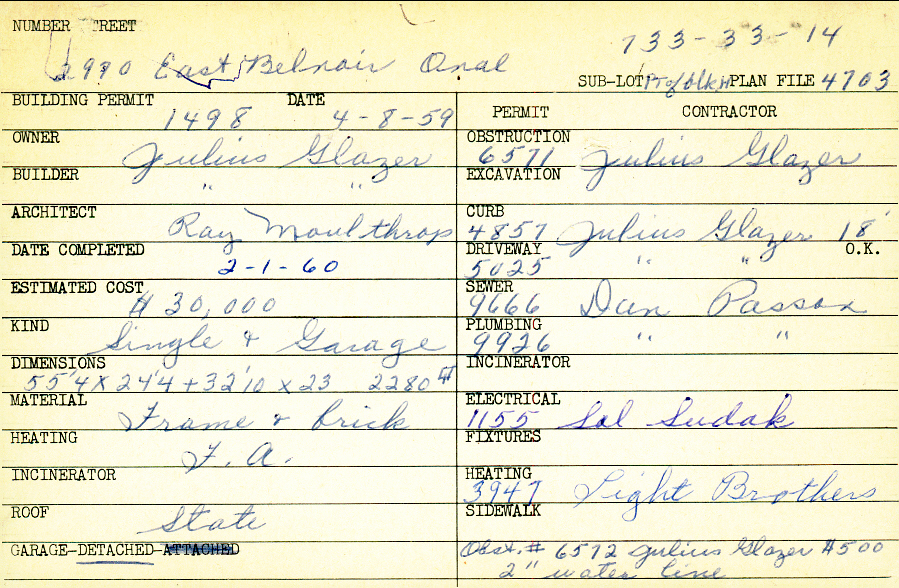 NUMBER STREET
733-33-14
2990 East Belvoir Oval
SUB-LOT Pt of blk H PLAN FILE 4703
BUILDING PERMIT 1498 DATE 4-8-59
OWNER Julius Glazer
BUILDER " "
ARCHITECT Ray Moulthrop
DATE COMPLETED 2-1-60
ESTIMATED COST $ 30,000
KIND Single & Garage
DIMENSIONS 55'4 X 24'4 + 32'10 x 23 2280
MATERIAL Frame & brick
HEATING F. A.
INCINERATOR
ROOF State
GARAGE-DETACHED-ATTACHED
PERMIT CONTRACTOR
OBSTRUCTION 6571 Julius Glazer
EXCAVATION
CURB 4857 Julius Glazer 18'
DRIVEWAY 5025 " " O.K.
SEWER 9666 Dan Passon
PLUMBING 9926 " "
INCINERATOR
ELECTRICAL 1155 Sol Sudak
FIXTURES
HEATING 3947 Light Brothers
SIDEWALK
Obst. # 6572 Julius Glazer $500
2" water line